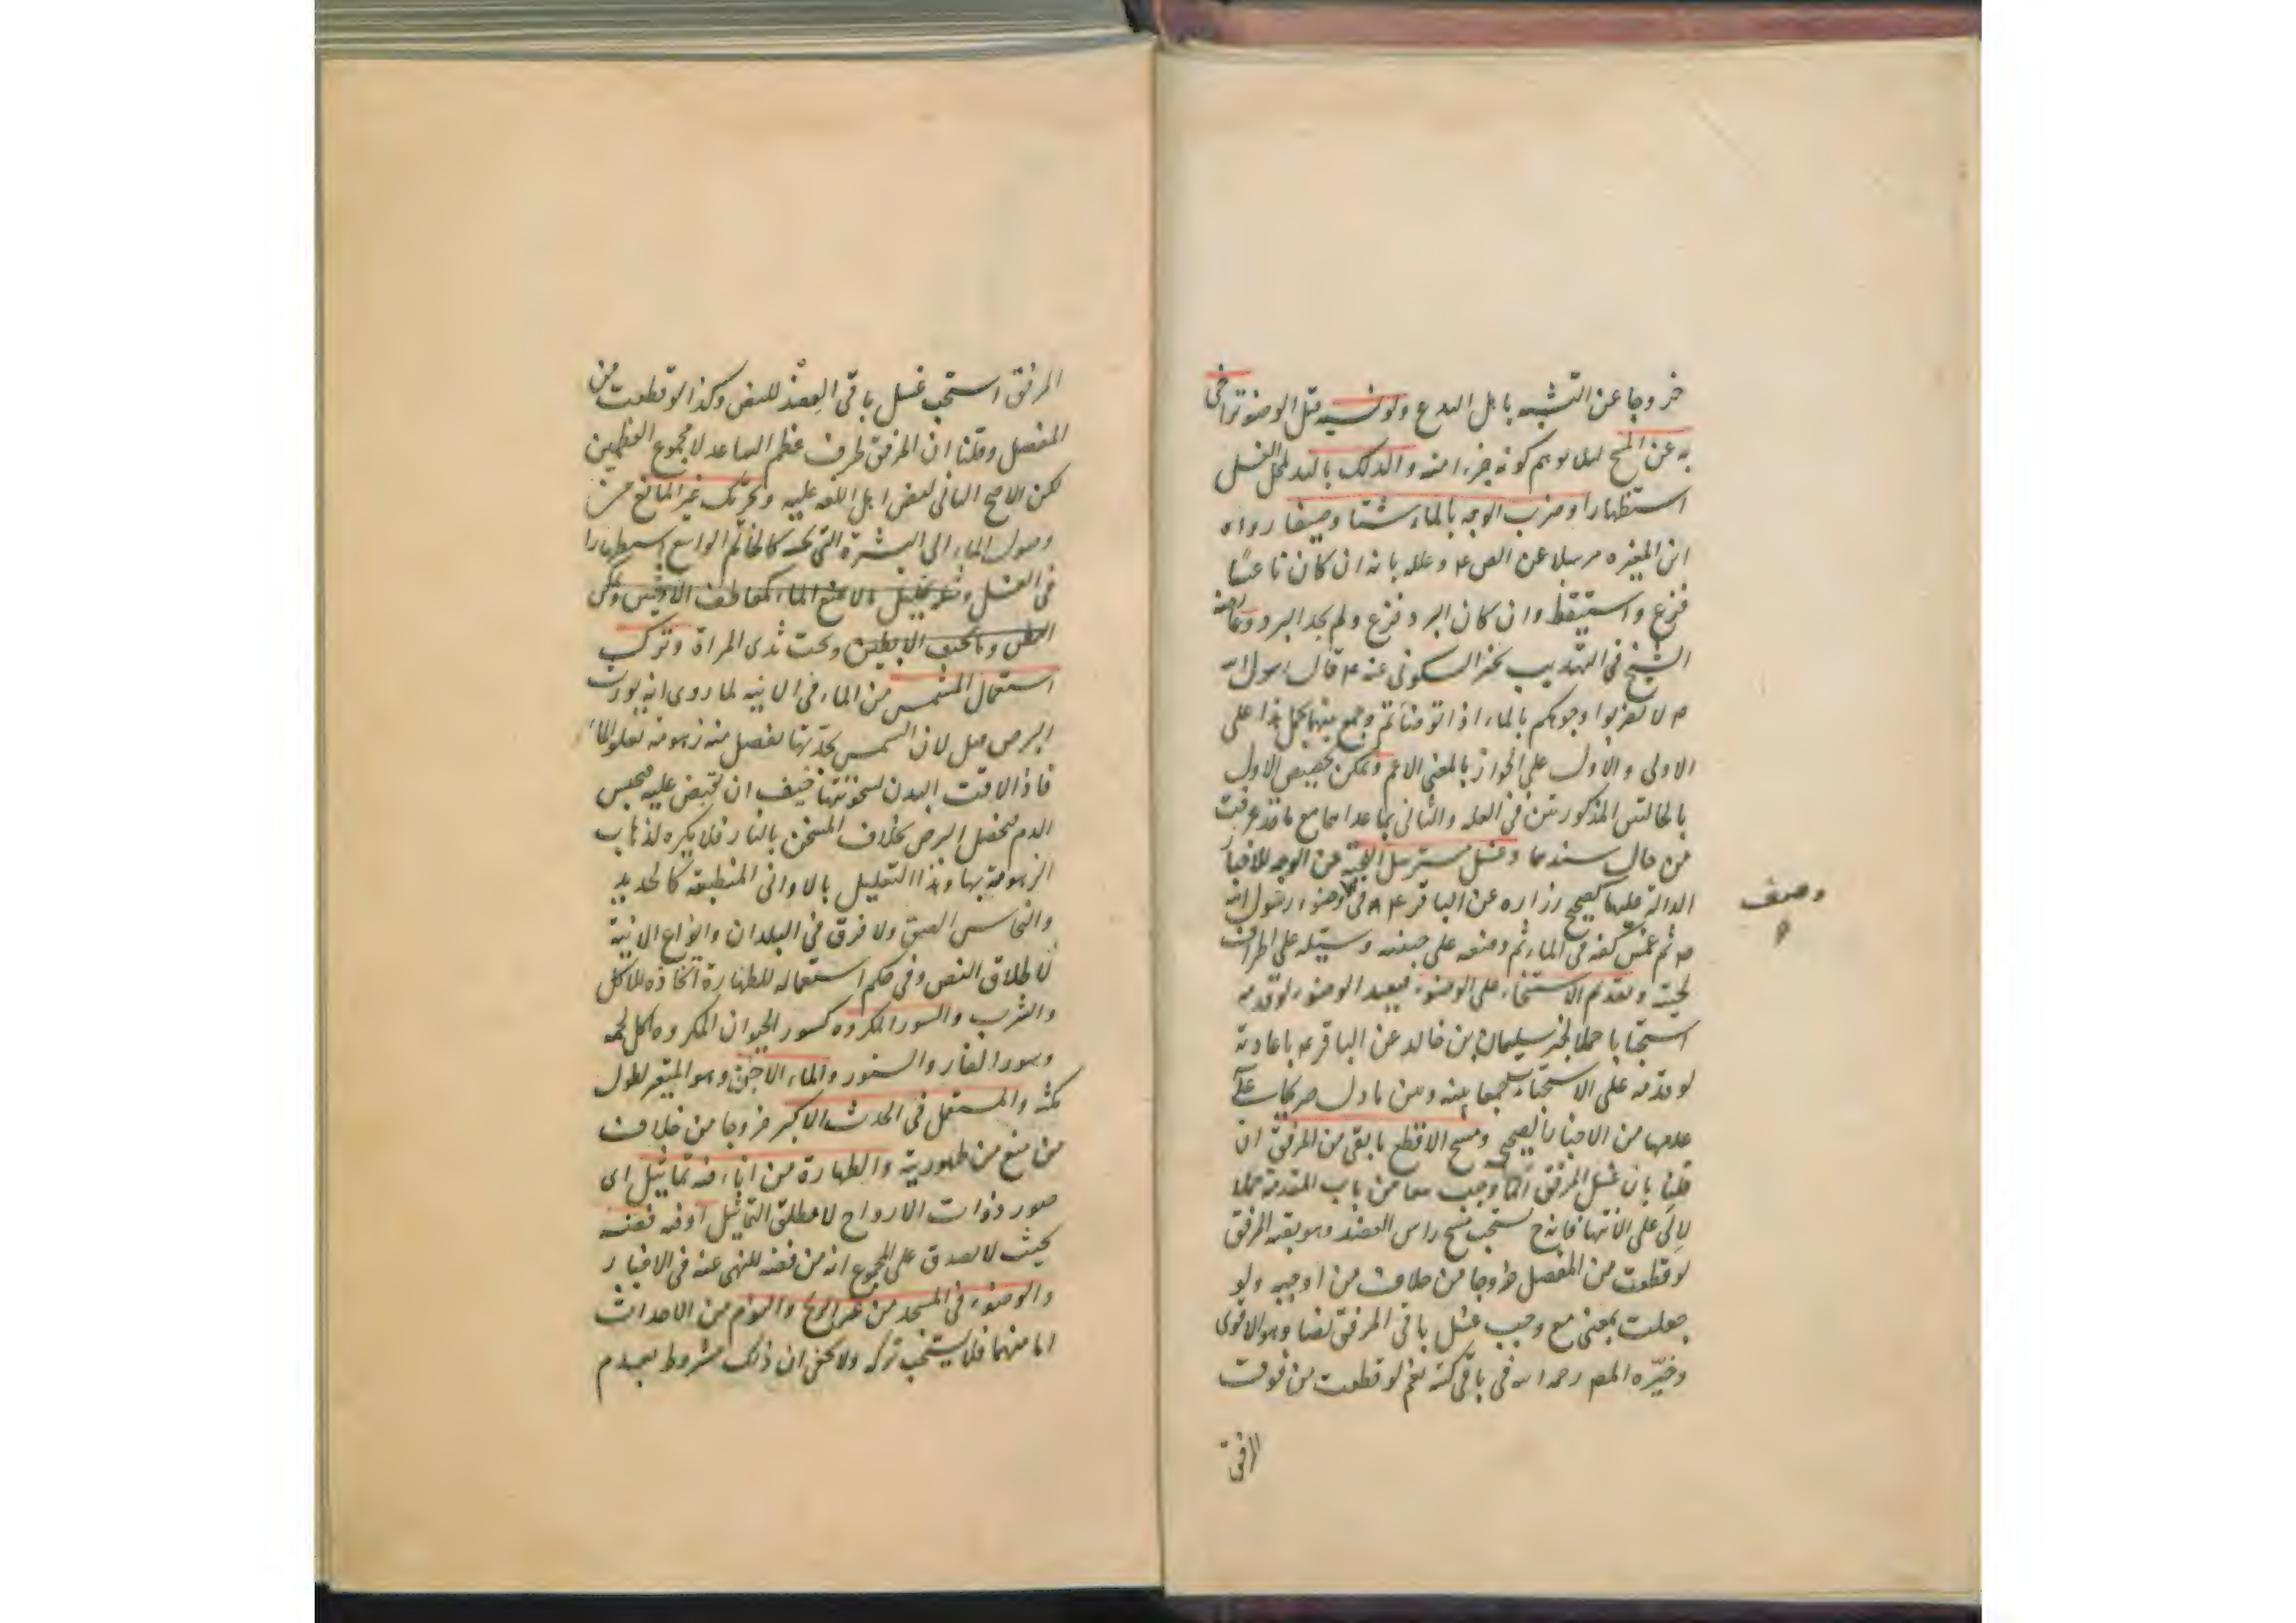 خروجا عن التشبه باهل البدع ولو نسيه قبل الوضوء تراخى
به عن المسح لئلا يوهم كونه جزءا منه والدلك باليد لمحل الغسل
استظهارا وضرب الوجه بالماء شتاء وصيفا رواه
ابن المغيره مرسلا عن الص ع وعلله بانه ان كان ناعسا
فزع واستيقظ وان كان البرد فزع ولم يجد البرد وعارضه
الشيخ في التهذيب بخبر السكوني عنه ع قال رسول الله
ص لا تضربوا وجوهكم بالماء اذا توضأتم وجمع بينهما بحمل هذا على
الاولى والاول على الجواز بالمعنى الاعم ويمكن تخصيص الاول
بالحالتين المذكورتين في العله والثاني بما عداهما مع ما قد عرفت
من حال سندهما وغسل مسترسل اللحية عن الوجه للاخبار
الدالة عليها كصحيح زراره عن الباقر ع في وضوء رسول الله
وصف
ص ثم غمس كفه في الماء ثم وضعه على جبينه وسيله على اطراف
لحيته وتقديم الاستنجاء على الوضوء فيعيد الوضوء لو قدمه
استحبابا حملا لخبر سليمان بن خالد عن الباقر ع باعادته
لو قدمه على الاستنجاء جمعا بينه وبين ما دل صريحا على
عدمها من الاخبار الصحيحه ومسح الاقطع ما بقي من المرفق ان
قلنا بان غسل المرفق انما وجب معا من باب المقدمة حملا
لالى على الانتهاء فانه ح يستحب مسح راس العضد وهو بقيه المرفق
لو قطعت من المفصل خروجا من خلاف من اوجبه ولو
جعلت بمعنى مع وجب غسل باقي المرفق نصا وهو الاقوى
وخيره المص رحمه الله في باقي كتبه نعم لو قطعت من فوق
المرفق
المرفق استحب غسل باقي العضد للنص وكذا لو قطعت من
المفصل وقلنا ان المرفق طرف عظم الساعد لا مجموع العظمين
لكن الاصح الثاني لنص اهل اللغه عليه وتحريك غير المانع من
وصول الماء الى البشرة التي تحته كالخاتم الواسع استظهارا
في الغسل وتخليل ما لا يمنع الماء كمعاطف الاذنين وعكن
البطن وما تحت الابطين وتحت ثدي المراة وترك
استعمال المشمس من الماء في الانيه لما روى انه يورث
البرص قيل لان الشمس بحدتها تفصل منه زهومة تعلو الماء
فاذا لاقت البدن لسخونتها خيف ان تقبض عليه فيحبس
الدم فيحصل البرص بخلاف المسخن بالنار فلا يكره لذهاب
الزهومة بها وهذا التعليل بالاواني المنطبعة كالحديد
والنحاس اليق ولا فرق في البلدان وانواع الانية
لاطلاق النص وفي حكم استعماله للطهارة اتخاذه للاكل
والشرب والسور المكروه كسور الحيوان المكروه اكل لحمه
وسور الفار والسنور والماء الاجن وهو المتغير لطول
مكثه والمستعمل في الحدث الاكبر خروجا من خلاف
من منع من طهوريته والطهارة من اناء فيه تماثيل اى
صور ذوات الارواح لا مطلق التماثيل او فيه فضة
بحيث لا يصدق على المجموع انه من فضه للنهى عنه في الاخبار
والوضوء في المسجد من غير الريح والنوم من الاحداث
اما منهما فلا يستحب تركه ولا يخفى ان ذلك مشروط بعدم